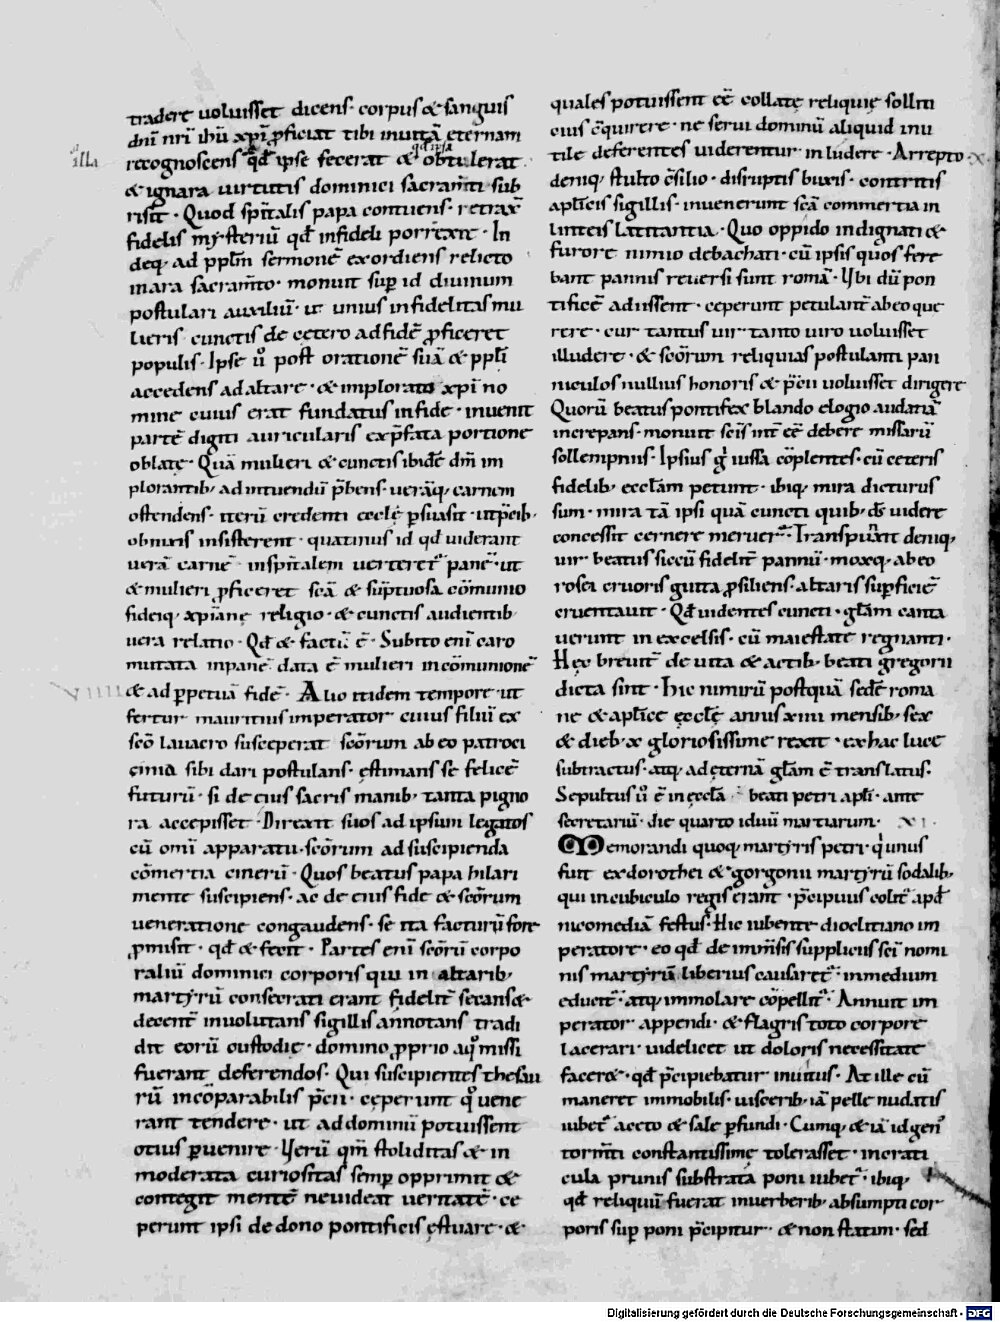 tradere voluisset dicens· corpus & sanguis
dñi nr̃i ihũ xp̃i ꝓficiat tibi in uitã eternam
recognoscens qđ ipse fecerat & qđ ipsa obtulerat·
illa
& ignara uirtutis dominici sacram̃ti sub
risit· Quod sp̃italis papa contuens· retrax̃
fidelis mysteriũ qđ infideli porrexit· In
deq; ad ppl̃m sermonẽ exordiens relicto
in ara sacram̃to· monuit suꝑ id diuinum
postulari auxiliũ· ut unius infidelitas mu
lieris cunctis de cetero ad fidẽ ꝓficeret
populis· Ipse ů post orationẽ suã & ppl̃i
accedens ad altare· & implorato xp̃i no
mine cuius erat fundatus in fide· inuenit
partẽ digiti auricularis ex p̃fata portione
oblatę· Quã mulieri & cunctis ibidẽ dm̃ im
plorantib; ad intuendũ p̃bens· uerãq; carnem
ostendens· iterũ credenti eccl̃ę ꝑsuasit· ut p̃cib;
obnixis insisterent· quatinus id qđ uiderant
uerã carnẽ· in sp̃italem uerteret᷑ panẽ· ut
& mulieri ꝓficeret sc̃a & sũptuosa cõmunio
fideiq; xp̃ianę religio· & cunctis audientib;
uera relatio· Qđ & factũ ẽ· Subito eni caro
mutata in panẽ data ẽ mulieri in cõmunionẽ
VIIII
& ad ꝑpetuã fidẽ· Alio itidem tempore ut
fertur mauritius imperator cuius filiũ ex
sc̃o lauacro susceperat sc̃orum ab eo patroci
cinia sibi dari postulans· estimans se felicẽ
futurũ· si de eius sacris manib; tanta pigno
ra accepisset· Direxit suos ad ipsum legatos
cũ omi apparatu· sc̃orum ad suscipienda
cõmertia cinerũ· Quos beatus papa hilari
mente suscipiens· ac de eius fide & sc̃orum
ueneratione congaudens· se ita facturũ fore
ꝓmisit· qđ & fecit· Partes eni sc̃orũ corpo
raliũ dominici corporis qui in altarib;
martyrũ consecrati erant fidelit̃ secans &
decent̃ inuolutans sigillis annotans tradi
dit eorũ custodię· domino ꝓprio a quo missi
fuerant deferendos· Qui suscipientes thesau
rũ incõparabilis p̃cii· ceperunt quo uene
rant tendere· ut ad dominũ potuissent
otius ꝑuenire· Verũ qm̃ stoliditas & in
moderata curiositas semꝑ opprimit &
contegit mentẽ ne uideat ueritatẽ· ce
perunt ipsi de dono pontificis ęstuare· &
quales potuissent ẽẽ collatę reliquię solliti
cius c̃quirere· ne serui dominũ aliquid inu
tile deferentes uiderentur inludere· Arrepto
X
deniq; stulto c̃silio· disruptis buxis· contritis
apl̃icis sigillis· inuenerunt sc̃a commertia in
linteis latitantia· Quo oppido indignati &
furore nimio debachati· cũ ipsis quos fere
bant pannis reuersi sunt romã· Vbi dũ pon
tificẽ adissent· ceperunt petulant̃ ab eo que
rere· cur tantus uir tanto uiro uoluisset
illudere· & sc̃orum reliquias postulanti pan
niculos nullius honoris & p̃cii uoluisset dirigere
Quorũ beatus pontifex blando elogio audatiã
increpans· monuit sc̃is int̃ ẽẽ debere missarũ
sollempniis· Ipsius g̊ iussa cõplentes· cũ ceteris
fidelib; eccl̃am petunt· ibiq; mira dicturus
sum· mira tã ipsi quã cuncti quib; ds̃ uidere
concessit cernere meruer᷑· Transpunx̃it deniq;
uir beatus siccũ fidelit̃ pannũ· moxq; ab eo
rosei cruoris gutta ꝓsiliens· altaris suꝑficiẽ
cruentauit· Qđ uidentes cuncti· gl̃am canta
uerunt in excelsis· cũ maiestate regnanti·
Hęc breuit̃ de uita & actib; beati gregorii
dicta sint· Hic nimirũ postquã sedẽ roma
nę & apl̃icę ęccl̃ę annis xiiii mensib; sex
& dieb; x gloriosissime rexit· ex hac luce
subtractus· atq; ad ęternã gl̃am ẽ translatus·
Sepultus ů ẽ in ęccl̃a beati petri apl̃i· ante
secretariũ· die quarto iduũ martiarum· XI·
Memorandi quoq; martyris petri· qui unus
fuit ex dorothei & gorgonii martyrũ sodalib;
qui in cubiculo regis erant· p̃cipuus colit᷑ apđ
nicomediã festus· Hic iubente diocletiano im
peratore· eo qđ de im̃ensis suppliciis sc̃i nomi
nis martyrũ liberius causaret᷑· in medium
educit᷑· atq; immolare cõpellit᷑· Annuit im
perator appendi· & flagris toto corpore
lacerari· uidelicet ut doloris necessitate
facer&· qđ p̃cipiebatur inuitus· At ille cũ
maneret immobilis· uisceribus iã pelle nudatis
iubet᷑ aceto & sale ꝑfundi· Cumq; & iã id gen᷒
torm̃ti constantissimę tolerasset· in crati
cula prunis substrata poni iubet᷑· ibiq;
qđ reliquũ fuerat in uerberib; absumpti cor
poris suꝑ poni p̃cipitur· & non statim· sed
Digitalisierung gefördert durch die Deutsche Forschungsgemeinschaft - DFG